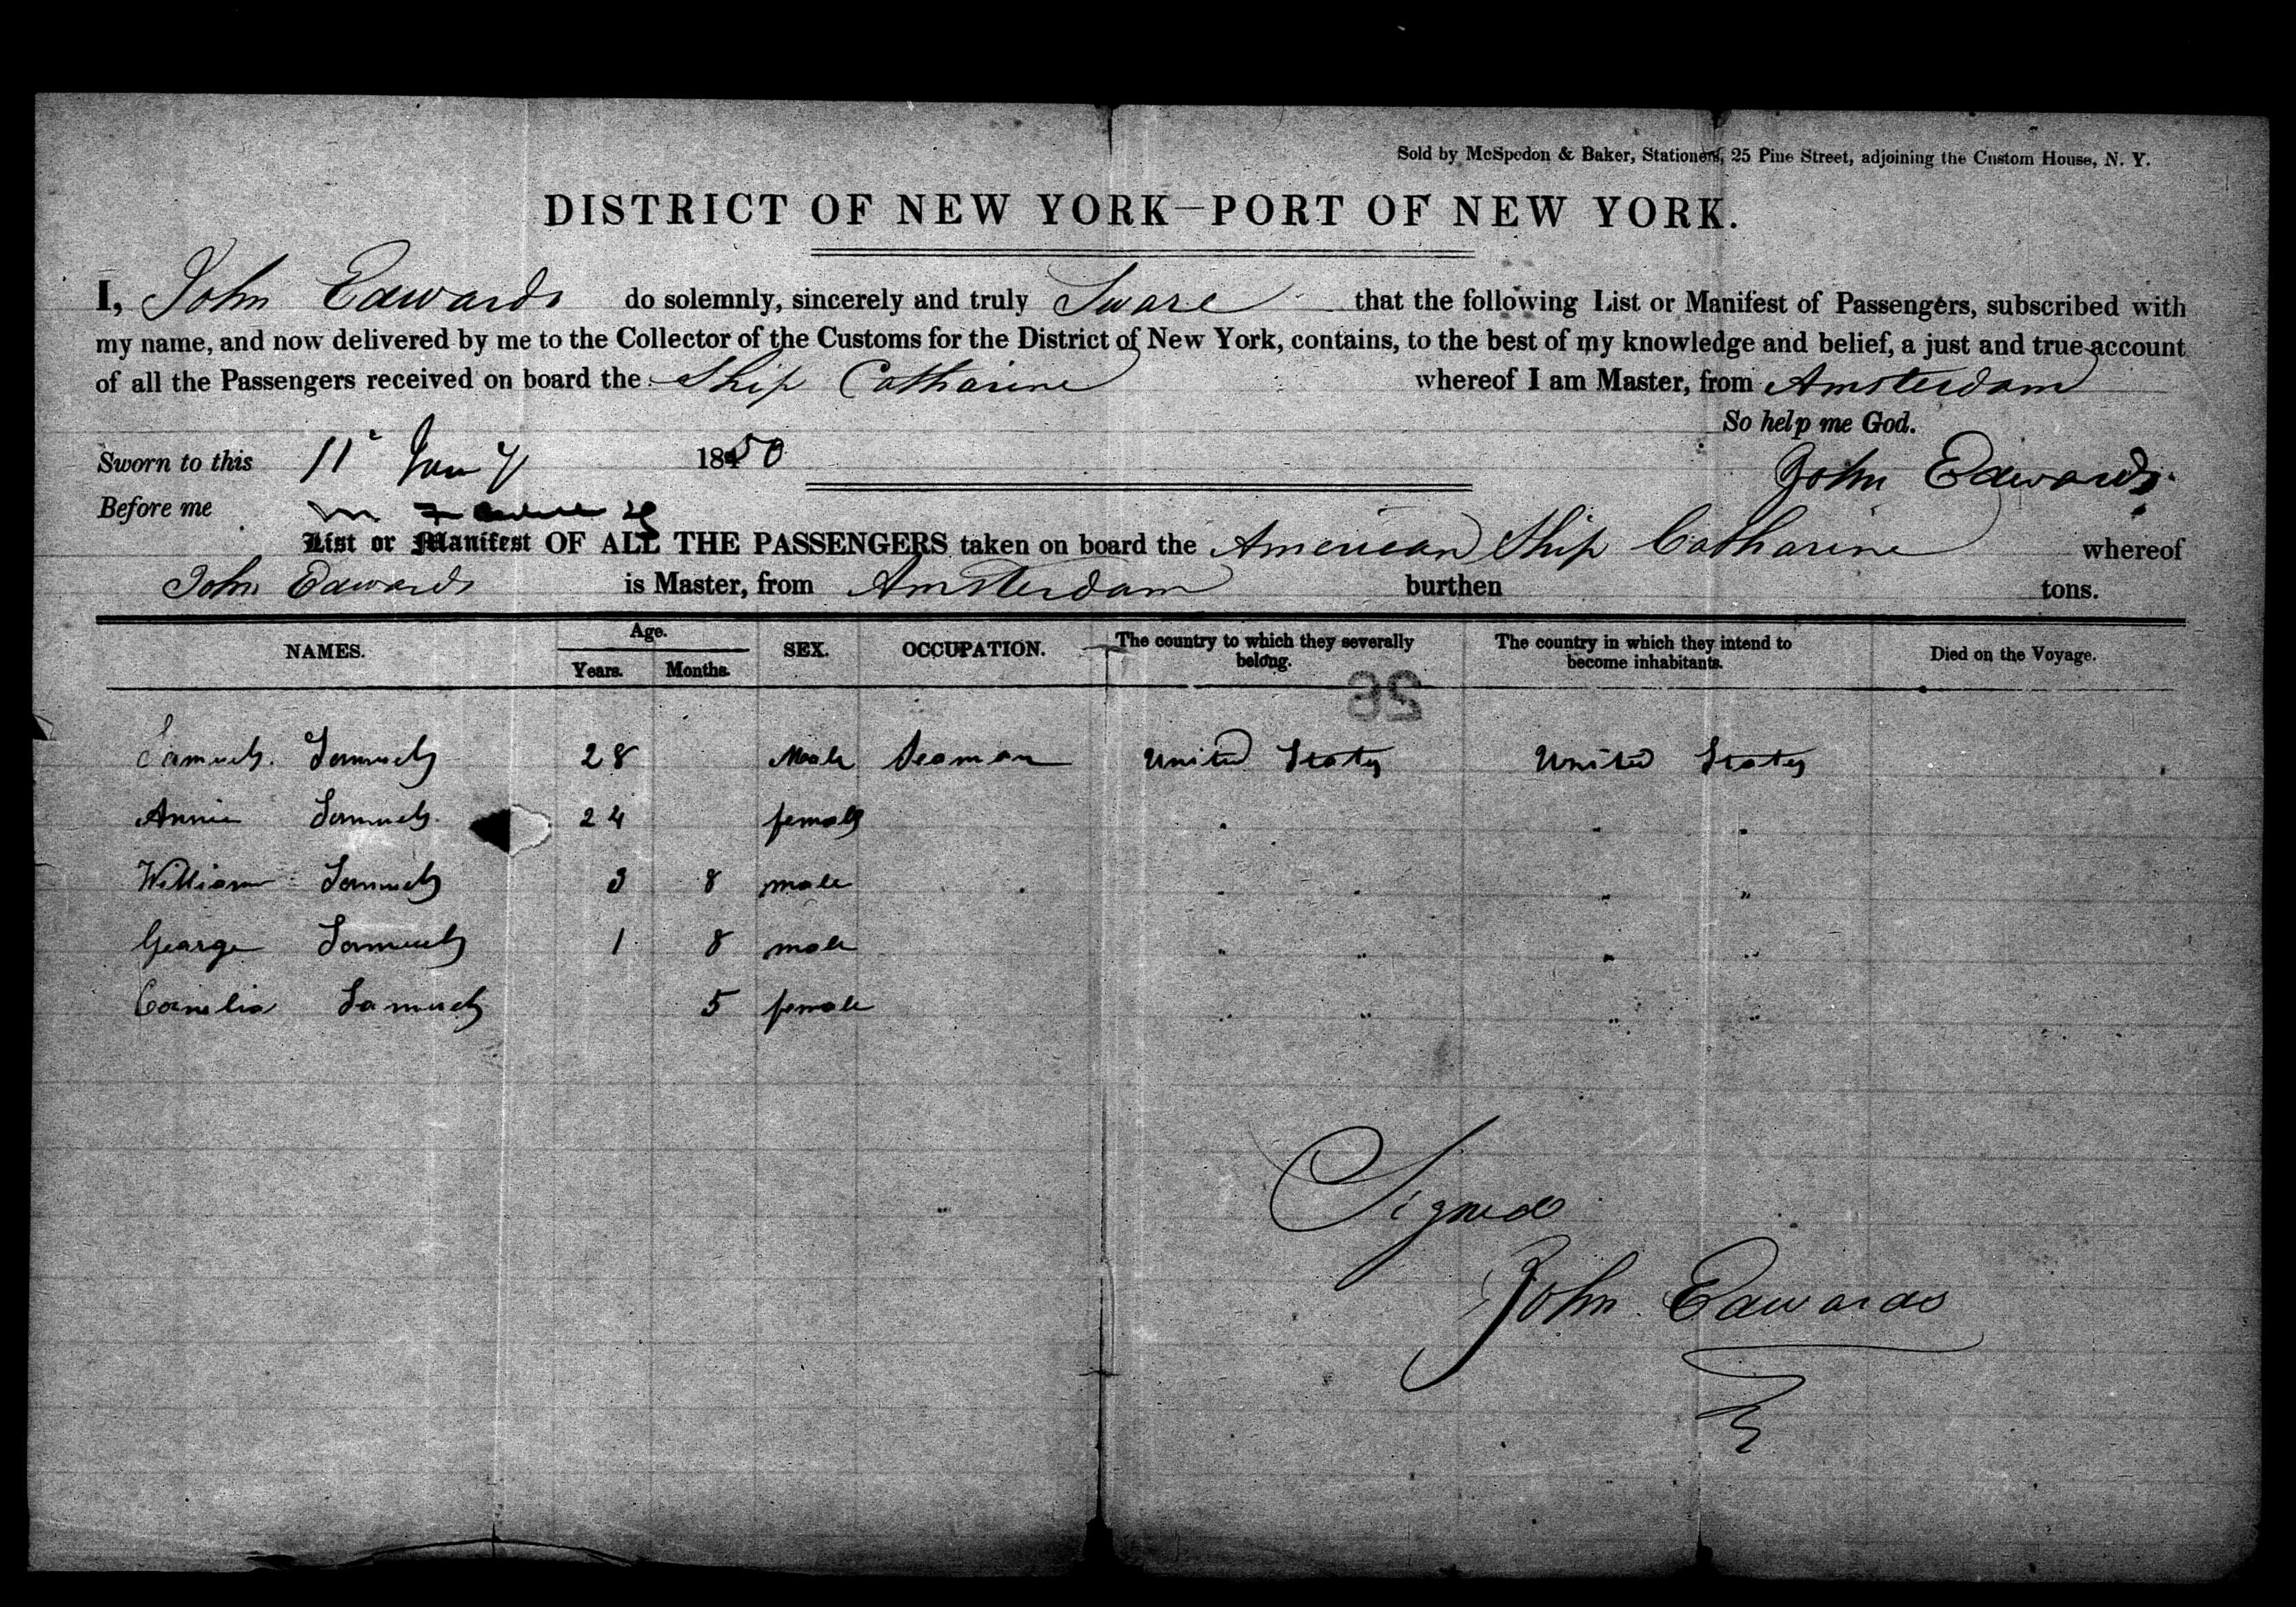 Sold by McSpedon & Baker, Stationers, 25 Pine Street, adjoining the Custom House, N. Y.
DISTRICT OF NEW YORK—PORT OF NEW YORK.
I, John Edwards do solemnly, sincerely and truly Sware that the following List or Manifest of Passengers, subscribed with
my name, and now delivered by me to the Collector of the Customs for the District of New York, contains, to the best of my knowledge and belief, a just and true account
of all the Passengers received on board the Ship Catharine whereof I am Master, from Amsterdam
So help me God.
Sworn to this 11 Jany 1850 John Edwards
Before me
List or Manifest OF ALL THE PASSENGERS taken on board the American Ship Catharine whereof
John Edwards is Master, from Amsterdam burthen tons.
NAMES. Age. Years. Months. SEX. OCCUPATION. The country to which they severally belong. The country in which they intend to become inhabitants. Died on the Voyage.
26
Samuels Samuels 28 Male Seaman United States United States
Annie Samuels 24 female " " "
William Samuels 3 8 male " " " "
George Samuels 1 8 male " " " "
Cornelia Samuels 5 female " " " "
Signed
John Edwards